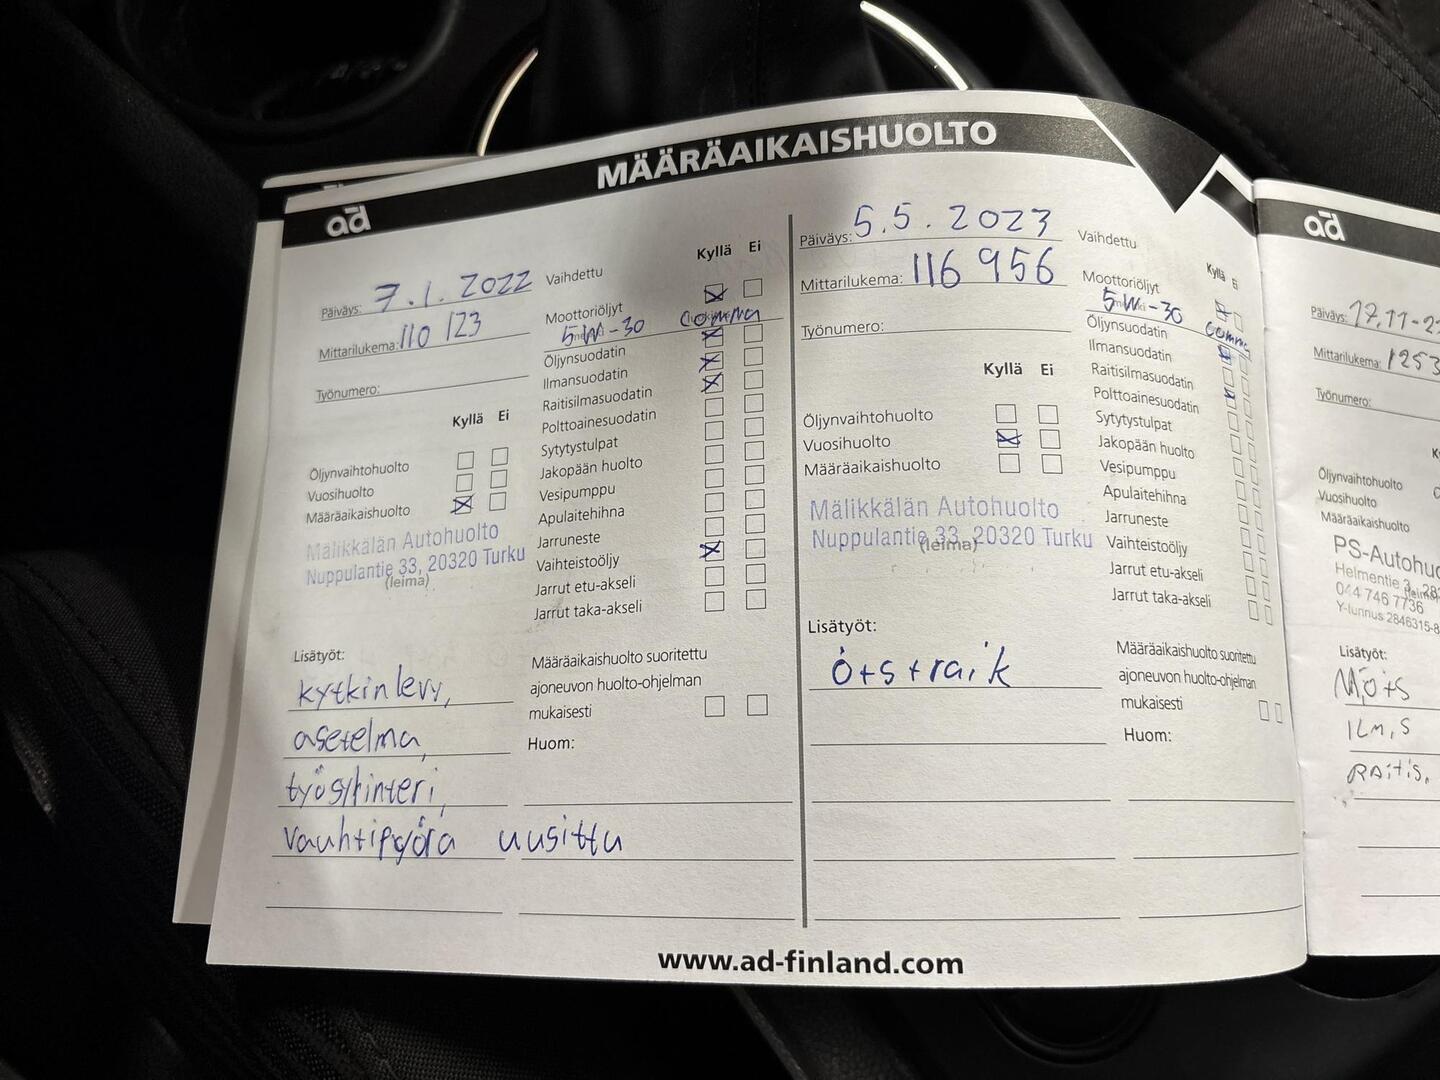 MÄÄRÄAIKAISHUOLTO
ad
Päiväys: 7.1.2022
Mittarilukema: 110 123
Työnumero:
Kyllä Ei
Öljynvaihtohuolto
Vuosihuolto
Määräaikaishuolto
Mälikkälän Autohuolto
Nuppulantie 33, 20320 Turku
(leima)
Lisätyöt:
kytkinlevy,
asetelma,
vauhtipyörä uusittu
Vaihdettu Kyllä Ei
Moottoriöljyt
5W-30 comma
Öljynsuodatin
Ilmansuodatin
Raitisilmasuodatin
Polttoainesuodatin
Sytytystulpat
Jakopään huolto
Vesipumppu
Apulaitehihna
Jarruneste
Vaihteistoöljy
Jarrut etu-akseli
Jarrut taka-akseli
Määräaikaishuolto suoritettu
ajoneuvon huolto-ohjelman
mukaisesti
Huom:
Päiväys: 5.5.2023
Mittarilukema: 116 956
Työnumero:
Kyllä Ei
Öljynvaihtohuolto
Vuosihuolto
Määräaikaishuolto
Mälikkälän Autohuolto
Nuppulantie 33, 20320 Turku
(leima)
Lisätyöt:
Vaihdettu Kyllä Ei
Moottoriöljyt
5W-30 comma
Öljynsuodatin
Ilmansuodatin
Raitisilmasuodatin
Polttoainesuodatin
Sytytystulpat
Jakopään huolto
Vesipumppu
Apulaitehihna
Jarruneste
Vaihteistoöljy
Jarrut etu-akseli
Jarrut taka-akseli
Määräaikaishuolto suoritettu
ajoneuvon huolto-ohjelman
mukaisesti
Huom:
www.ad-finland.com
ad
Päiväys: 17.11-23
Mittarilukema: 1253
Työnumero:
Öljynvaihtohuolto
Vuosihuolto
Määräaikaishuolto
PS-Autohuo
Helmentie 3,
044 746 7736
Y-tunnus 2846315-8
Lisätyöt:
Möts
ilm,s
Raitis.